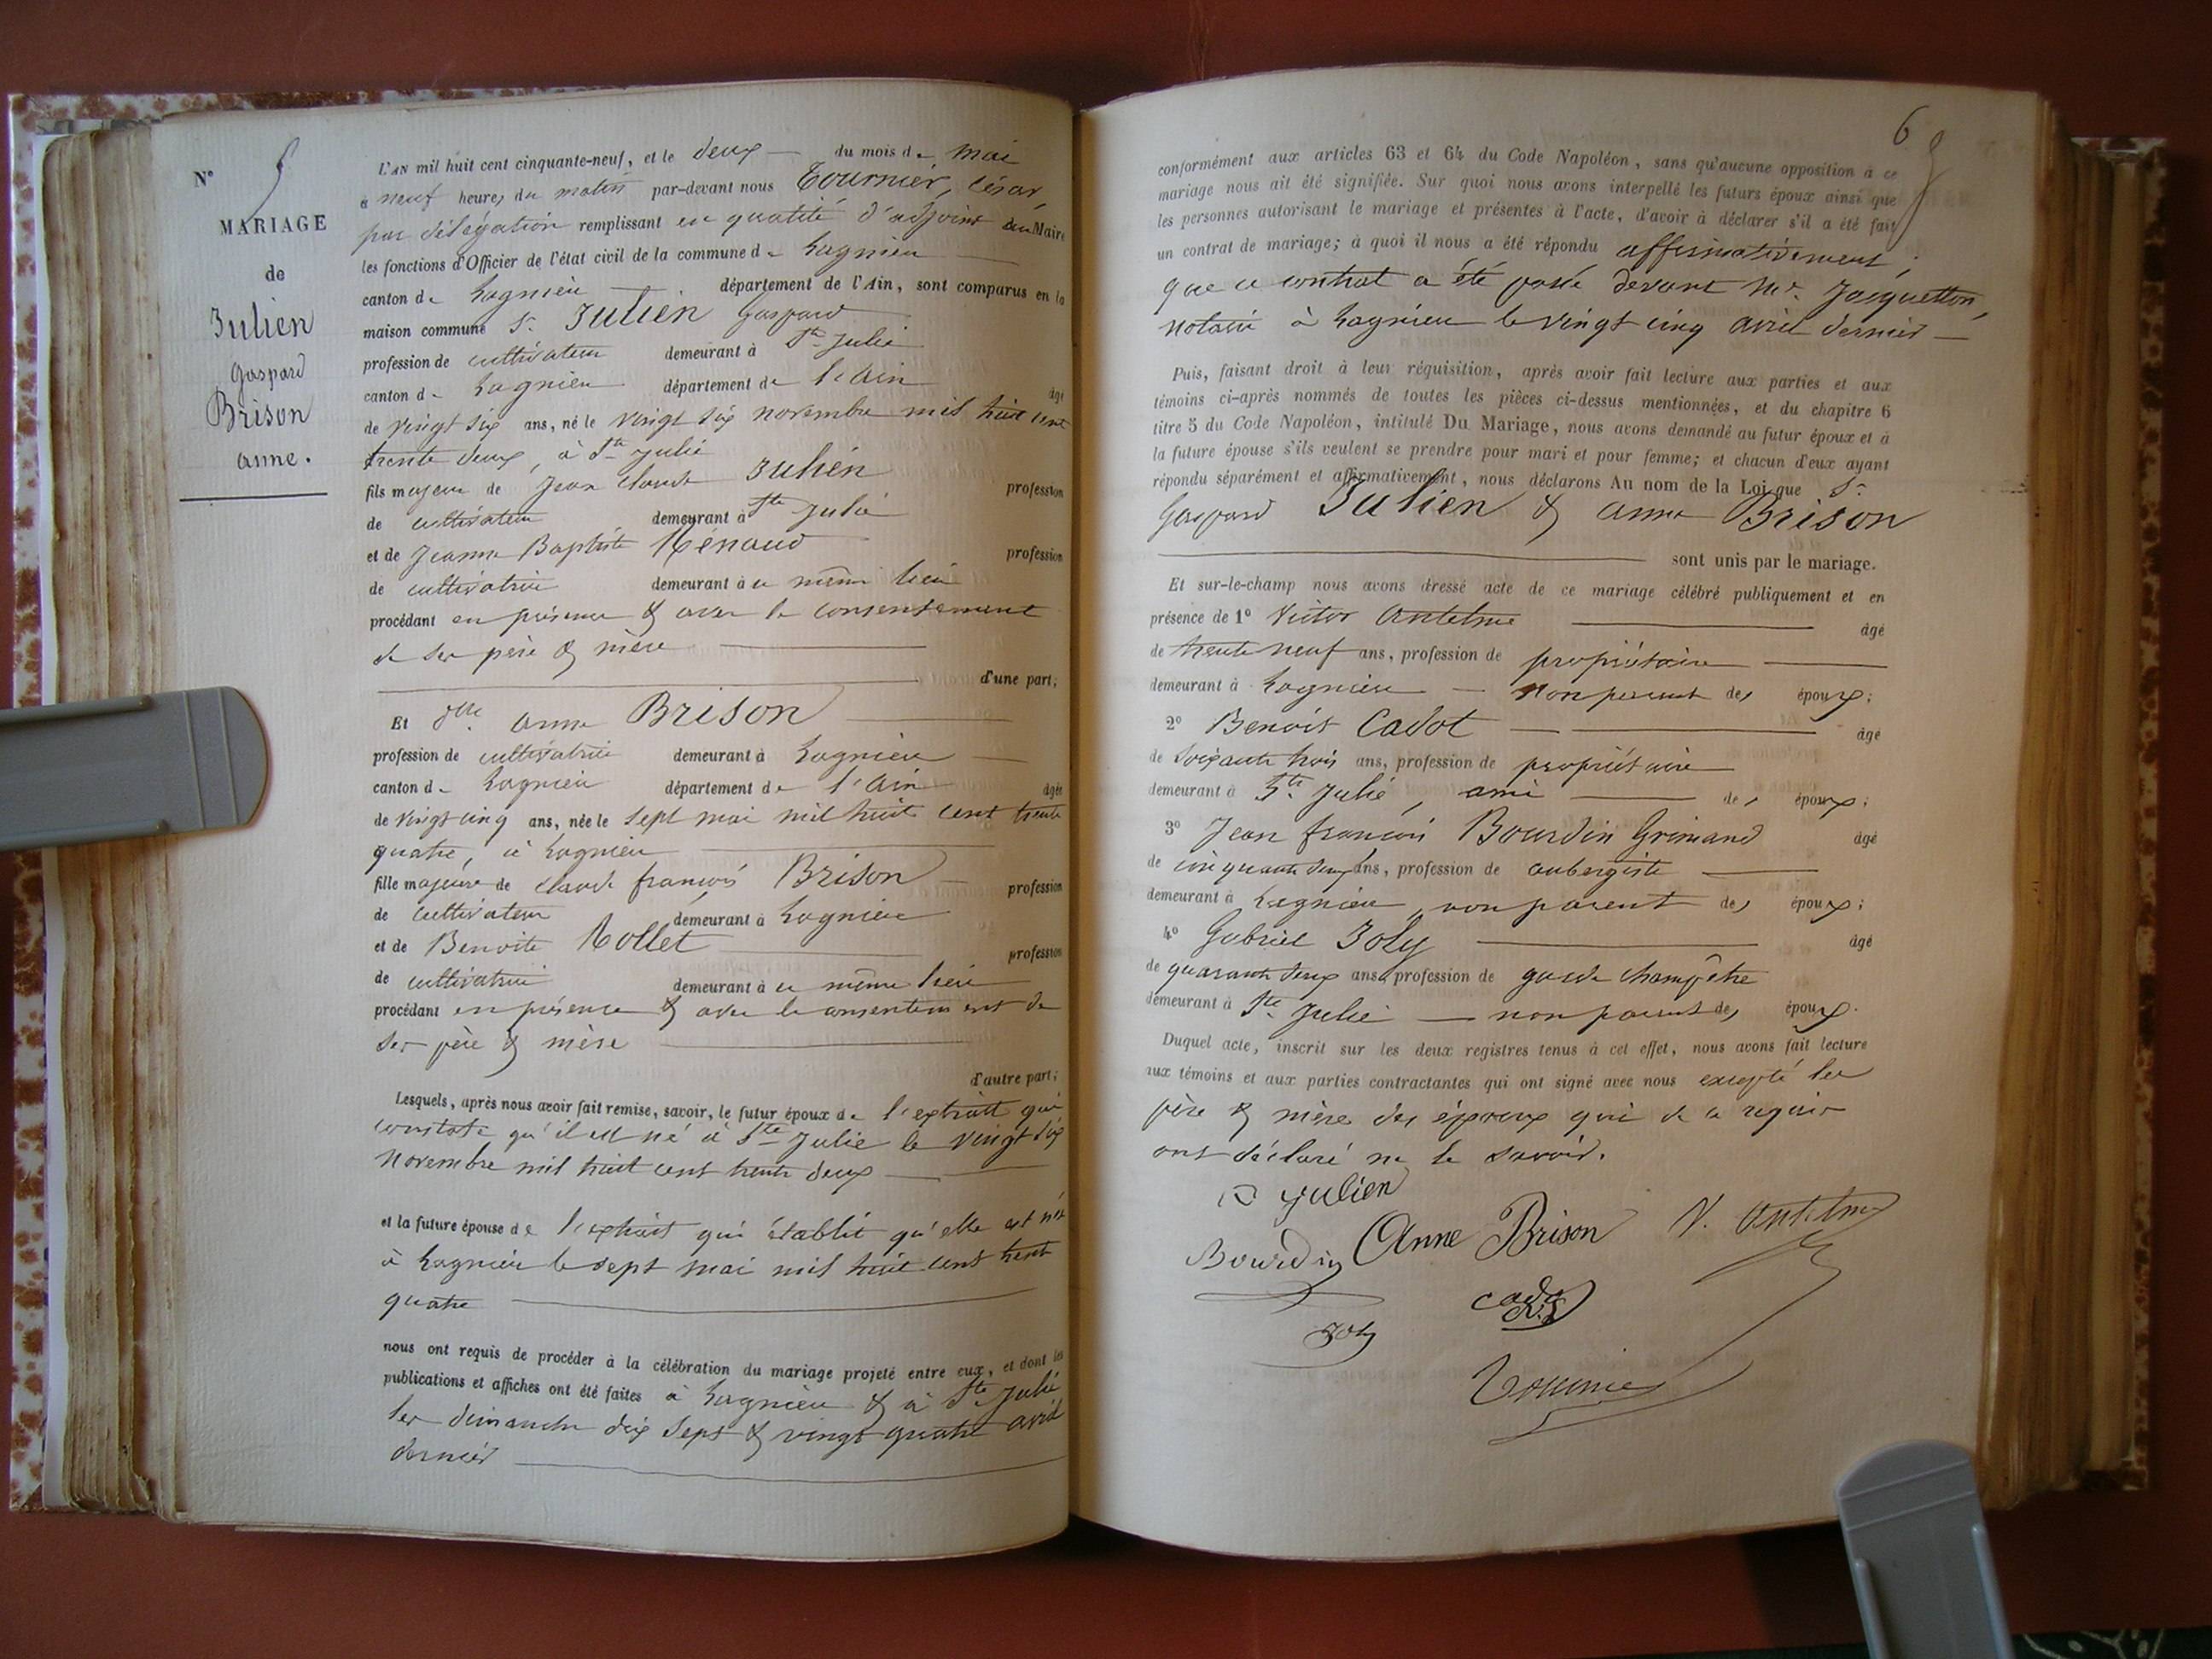 N° 5
MARIAGE
de
Julien
Gaspard
Brison
anne.
L'AN mil huit cent cinquante-neuf, et le deux du mois de mai
à neuf heures du matin par-devant nous Tournier, César,
par délégation remplissant en qualité d'adjoint au Maire
les fonctions d'Officier de l'état civil de la commune de Lagnieu
canton de Lagnieu département de l'Ain, sont comparus en la
maison commune Sr Julien Gaspard
profession de cultivateur demeurant à Ste Julie
canton de Lagnieu département de l'Ain âgé
de vingt six ans, né le vingt six novembre mil huit cent
trente deux, à Ste Julie
fils majeur de Jean Claude Julien profession
de cultivateur demeurant à Ste Julie
et de Jeanne Baptiste Rénaud profession
de cultivatrice demeurant à ce même lieu
procédant en présence & avec le consentement
de ses père & mère
d'une part;
Et dlle anne Brison
profession de cultivatrice demeurant à Lagnieu
canton de Lagnieu département de l'Ain âgée
de vingt cinq ans, née le sept mai mil huit cent trente
quatre, à Lagnieu
fille majeure de Claude françois Brison profession
de cultivateur demeurant à Lagnieu
et de Benoite Rollet profession
de cultivatrice demeurant à ce même lieu
procédant en présence & avec le consentement de
ses père & mère
d'autre part;
Lesquels, après nous avoir fait remise, savoir, le futur époux de l'extrait qui
constate qu'il est né à Ste Julie le vingt six
novembre mil huit cent trente deux
et la future épouse de l'extrait qui établit qu'elle est née
à Lagnieu le sept mai mil huit cent trente
quatre
nous ont requis de procéder à la célébration du mariage projeté entre eux, et dont les
publications et affiches ont été faites à Lagnieu & à Ste Julie
les dimanche dix sept & vingt quatre avril
dernier
6
conformément aux articles 63 et 64 du Code Napoléon, sans qu'aucune opposition à ce
mariage nous ait été signifiée. Sur quoi nous avons interpellé les futurs époux ainsi que
les personnes autorisant le mariage et présentes à l'acte, d'avoir à déclarer s'il a été fait
un contrat de mariage; à quoi il nous a été répondu affirmativement,
que ce contrat a été passé devant Me Jacquetton,
notaire à Lagnieu le vingt cinq avril dernier
Puis, faisant droit à leur réquisition, après avoir fait lecture aux parties et aux
témoins ci-après nommés de toutes les pièces ci-dessus mentionnées, et du chapitre 6
titre 5 du Code Napoléon, intitulé Du Mariage, nous avons demandé au futur époux et à
la future épouse s'ils veulent se prendre pour mari et pour femme; et chacun d'eux ayant
répondu séparément et affirmativement, nous déclarons Au nom de la Loi que Sr
Gaspard Julien & anne Brison
sont unis par le mariage.
Et sur-le-champ nous avons dressé acte de ce mariage célébré publiquement et en
présence de 1° Victor Antelme âgé
de trente neuf ans, profession de propriétaire
demeurant à Lagnieu non parent des époux;
2° Benoit Cadot âgé
de soixante trois ans, profession de propriétaire
demeurant à Ste Julie, ami des époux;
3° Jean françois Bourdin Grimaud âgé
de cinquante deux ans, profession de aubergiste
demeurant à Lagnieu, non parent des époux;
4° Gabriel Joly âgé
de quarante deux ans, profession de garde champêtre
demeurant à Ste Julie non parent des époux.
Duquel acte, inscrit sur les deux registres tenus à cet effet, nous avons fait lecture
aux témoins et aux parties contractantes qui ont signé avec nous excepté les
père & mère des époux qui de ce requis
ont déclaré ne le savoir.
Julien
Bourdin Anne Brison V. Antelme
Joly
Tournier